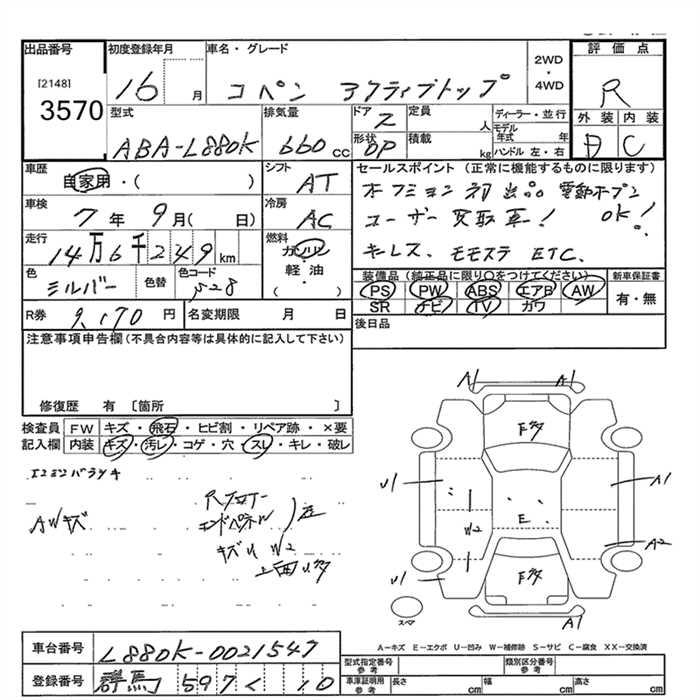 出品番号 初度登録年月 車名・グレード 評価点
[2148] 3570
16 月 コペン アクティブトップ 2WD・4WD R
型式 排気量 ドア 定員 ディーラー・並行 外装 内装
ABA-L880K 660cc 2 人 モデル年式 年
形状 OP 積載 kg ハンドル 左・右 C
車歴 シフト セールスポイント (正常に機能するものに限ります)
自家用・( ) AT
車検 冷房 電動オープン
7年 9月( 日) AC ユーザー買取車! OK!
走行 燃料
14万6千249km ガソリン キーレス、モモステ ETC.
色 色替 色コード 軽油 装備品 (純正品に限り○をつけてください) 新車保証書
シルバー S28 ( ) PS PW ABS エアB AW 有・無
SR ナビ TV カワ
R券 9,170円 名変期限 月 日 後日品
注意事項申告欄(不具合内容等は具体的に記入して下さい)
修復歴 有 〔箇所 〕
検査員 FW キズ・飛石・ヒビ割・リペア跡・×要
記入欄 内装 キズ・汚レ・コゲ・穴・スレ・キレ・破レ
AWキズ
Rフロアー
エンドパネル 左
キズU W2
A1 A1
U1 A1
W2 E
A2
U1
スペア A1
A－キズ E－エクボ U－凹み W－補修跡 S－サビ C－腐食 XX－交換済
車台番号 L880K-0021547
型式指定番号 参考 類別区分番号 参考
登録番号 群馬 597 く 10
車庫証明用 参考 長さ cm 幅 cm 高さ cm